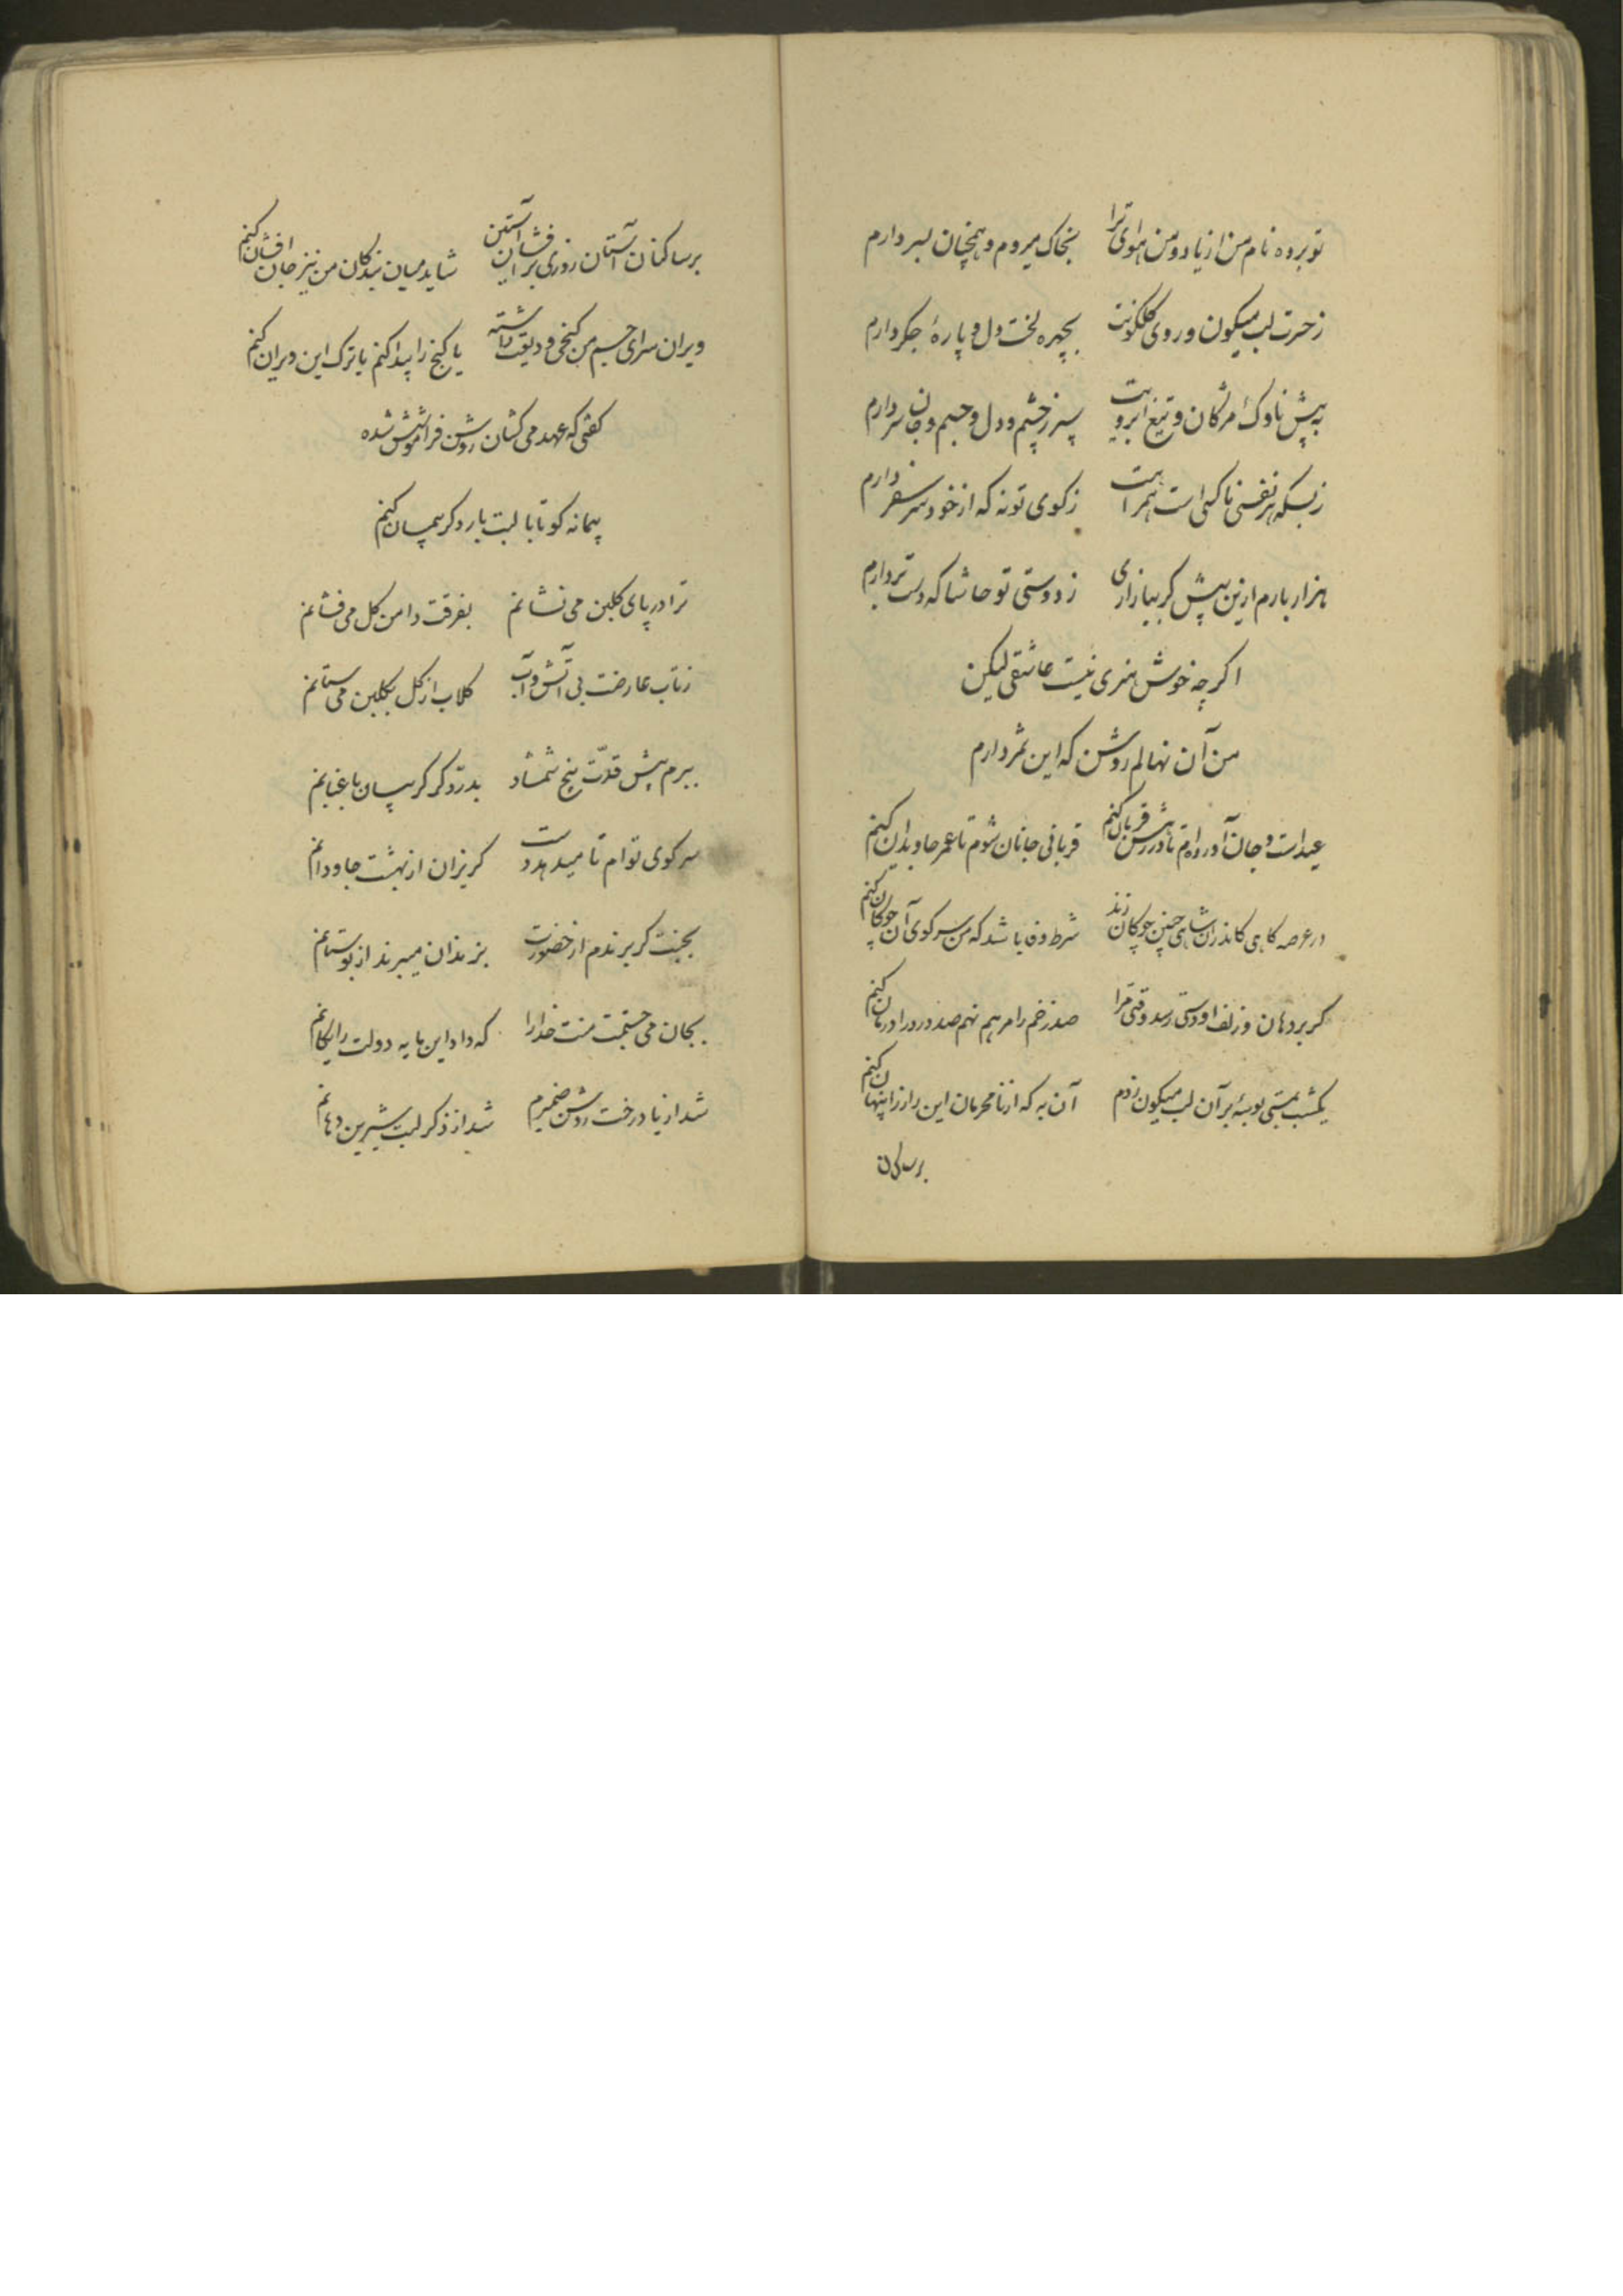 تو برده نام من از یاد و من هوای ترا بخاک میروم و همچنان بسر دارم
ز حسرت لب میگون و روی گلگونت بچهره لخت دل و پارهٔ جگر دارم
به پیش ناوک مژگان و تیغ ابرویت سپر ز چشم و دل و جسم و جان و سر دارم
ز بسکه هر نفسی ناکسی است همراهت ز کوی تو نه که از خود سر سفر دارم
هزار بارم ازین پیش گر بیازاری ز دوستی تو حاشا که دست بردارم
اگر چه خوش هنری نیست عاشقی لیکن
من آن نهالم روشن که این ثمر دارم
عید است و جان آورده‌ام تا در رهش قربان کنم قربانی جانان شوم تا عمر جاویدان کنم
در عرصه گاهی کاندر ان شاهی چنین چوگان زند شرط وفا باشد که من سر گوی آن چوگان کنم
گر بر دهان و زلف او دستی رسد وقتی مرا صد زخم را مرهم نهم صد درد را درمان کنم
یکشب بمستی بوسهٔ بر آن لب میگون زدم آن به که از نامحرمان این راز را پنهان کنم
بر ساکنان
بر ساکنان آستان روزی بر افشان آستین شاید میان بندگان من نیز جان افشان کنم
ویران سرای جسم من گنجی ودیعت داشته یا گنج را پیدا کنم یا ترک این ویران کنم
گفتی که عهد می کشان روشن فراموشش شده
پیمانه کو تا با لبت بار دگر پیمان کنم
ترا در پای گلبن می نشانم بفرقت دامن گل می فشانم
ز تاب عارضت بی آتش و آب گلاب از گل بگلبن می ستانم
ببرم پیش قدت بیخ شمشاد بدرد گر گریبان باغبانم
سر کوی توام تا میدهد دست گریزان از بهشت جاودانم
بجنت گر برندم از حضورت بزندان میبرند از بوستانم
بجان می جستمت منت خدا را که داد این مایه دولت رایگانم
شد از یاد رخت روشن ضمیرم شد از ذکر لبت شیرین دهانم